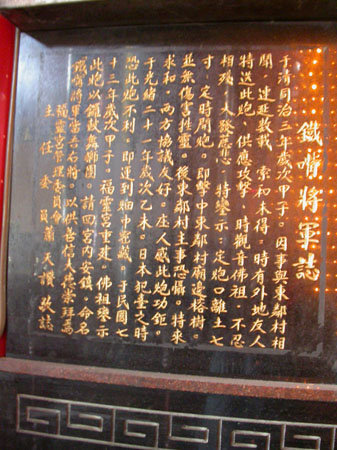 鐵嘴將軍誌
于清同治三年歲次甲子。因事與東鄰村相
鬧，連延數載，索和未得。時有外地友人
特送此炮，供應攻擊，時觀音佛祖，不忍
相殘，大發慈悲，特鑾示，定炮口離土七
寸，定時間炮。即擊中東鄰村廟邊榕樹。
並無傷害性靈。後東鄰村主事恐懼。特來
求和。兩方協議友好。庄人感此炮功鉅。
于光緒二十一年歲次乙未。日本犯臺之時
恐此炮不利，即運到　中密藏。于民國七
十三年歲次甲子。福靈宮重建。佛祖鑾示
此炮以鑼鼓舞獅團。請回宮內安鎮。命名
鐵嘴將軍當吉石將。以供善信大德崇拜焉
福靈宮管理委員會
主任委員蕭天讚敬誌